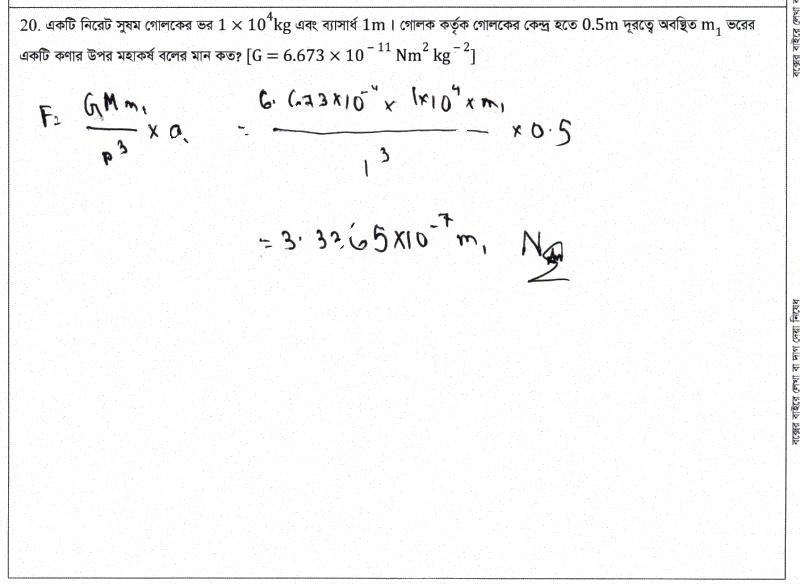 20. একটি নিরেট সুষম গোলকের ভর 1 × 10⁴kg এবং ব্যাসার্ধ 1m । গোলক কর্তৃক গোলকের কেন্দ্র হতে 0.5m দূরত্বে অবস্থিত m₁ ভরের
একটি কণার উপর মহাকর্ষ বলের মান কত? [G = 6.673 × 10⁻¹¹ Nm² kg⁻²]
F = GMm₁ / R³ × a = 6.673×10⁻¹¹ × 1×10⁴ × m₁ / 1³ × 0.5
= 3.3265×10⁻⁷ m₁ N